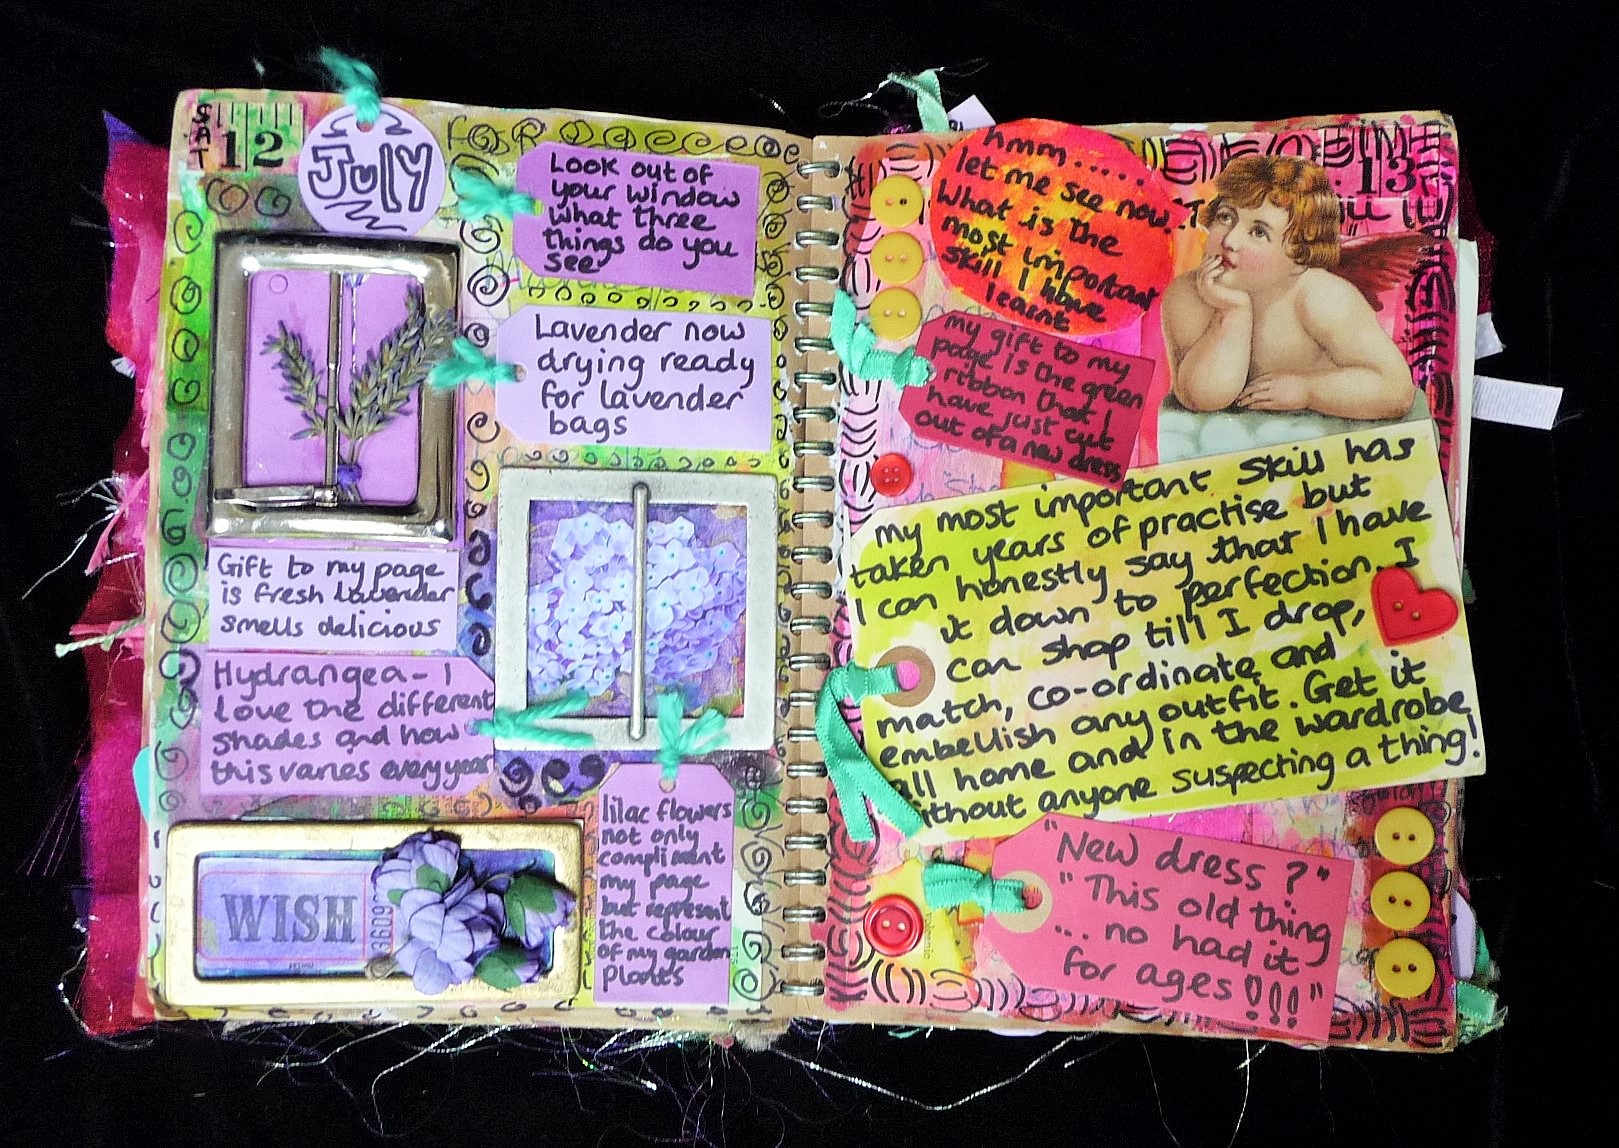 SAT
12
July
FOR
Look out of
your window
what three
things do you
see
Lavender now
drying ready
for lavender
bags
Gift to my page
is fresh lavender
smells delicious
Hydrangea - I
love the different
shades and how
this varies every year
WISH
36092
lilac flowers
not only
compliment
my page
but represent
the colour
of my garden
plants
13
hmm.....
let me see now...
What is the
most important
skill I have
learnt
my gift to my
page is the green
ribbon that I
have just cut
out of a new dress
my most important skill has
taken years of practise but
I can honestly say that I have
it down to perfection. I
can shop till I drop,
match, co-ordinate and
embellish any outfit. Get it
all home and in the wardrobe
without anyone suspecting a thing!
"New dress?"
"This old thing
... no had it
for ages!!!"